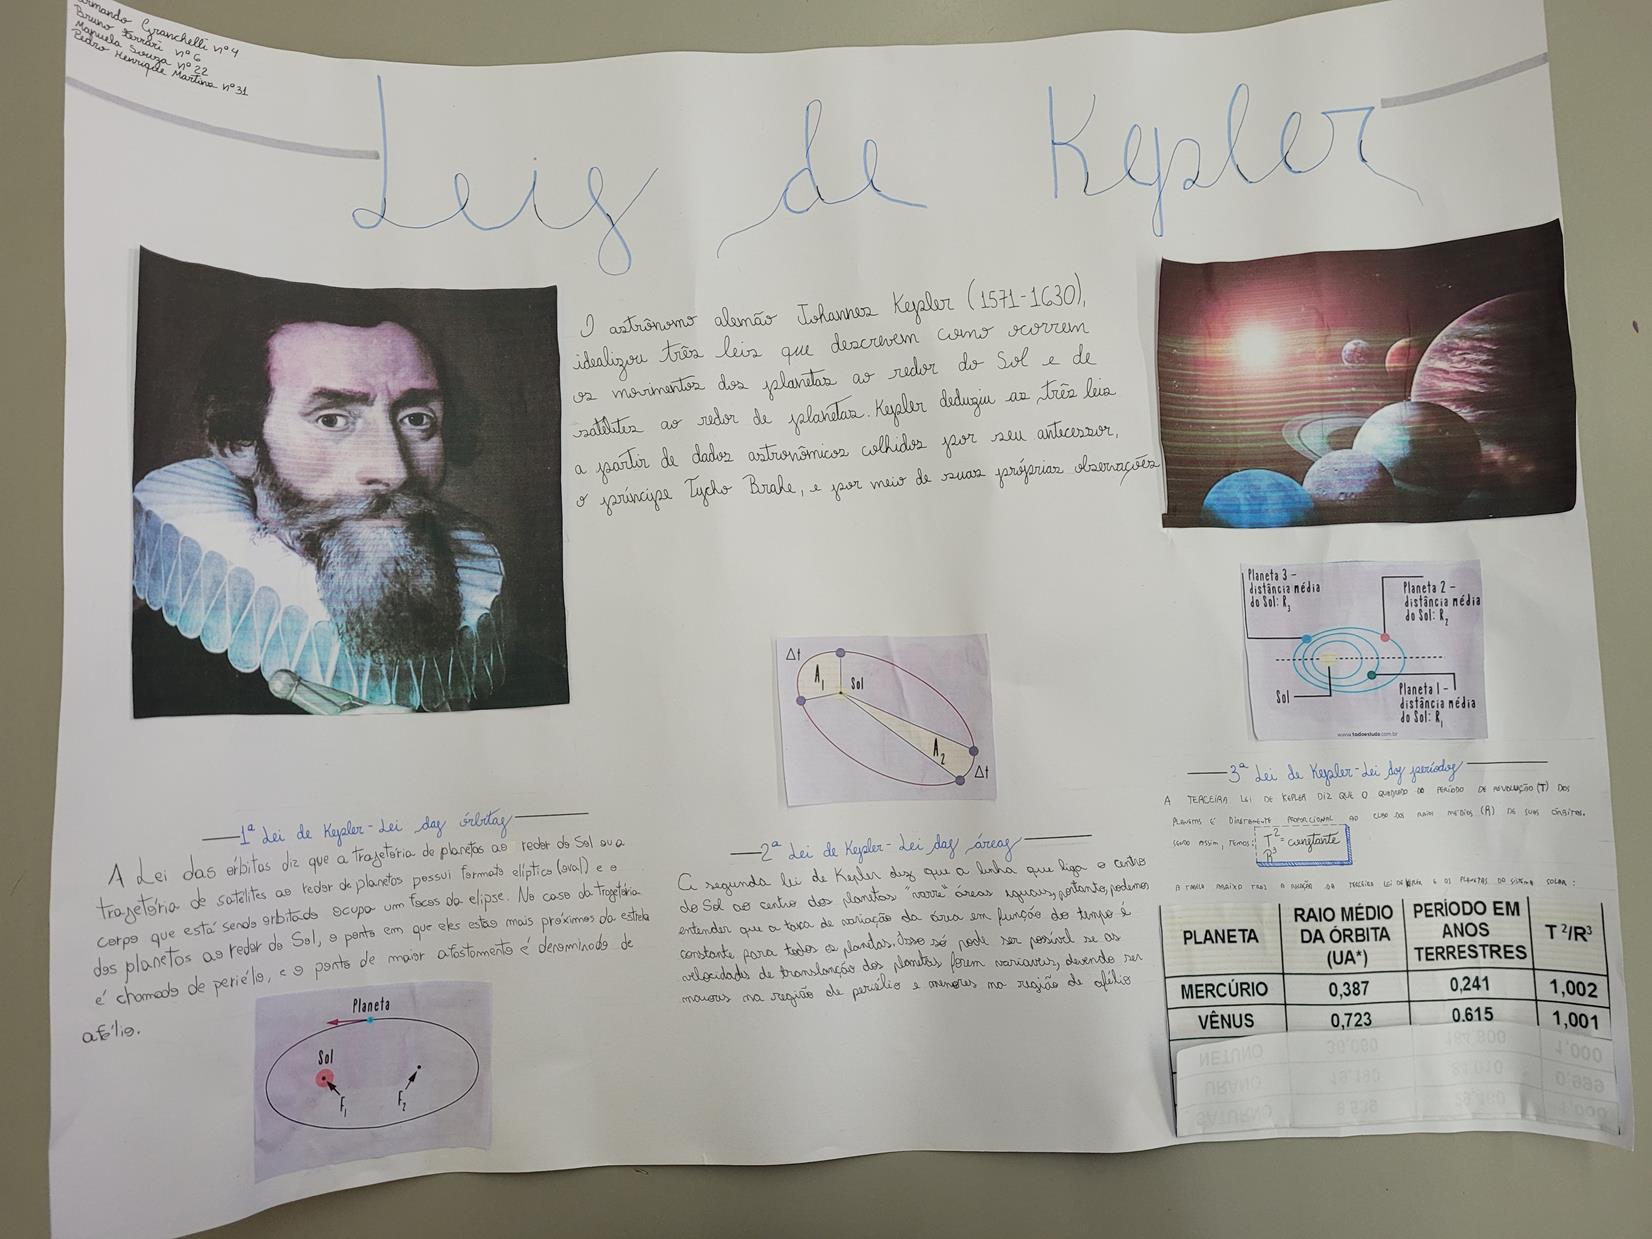 Armando Granchelli nº4
Bruno Ferrari nº 6
Manuela Souza nº 22
Pedro Henrique Martins nº31
Leis de Kepler
O astrônomo alemão Johannes Kepler (1571-1630),
idealizou três leis que descrevem como ocorrem
os movimentos dos planetas ao redor do Sol e de
satélites ao redor de planetas. Kepler deduziu as três leis
a partir de dados astronômicos colhidos por seu antecessor,
o príncipe Tycho Brahe, e por meio de suas próprias observações
Planeta 3 –
distância média
do Sol: R3
Planeta 2 –
distância média
do Sol: R2
Sol
Planeta 1 –
distância média
do Sol: R1
www.todoestudo.com.br
Δt
A1
Sol
A2
Δt
1ª Lei de Kepler - Lei das órbitas
A Lei das órbitas diz que a trajetória de planetas ao redor do Sol ou a
trajetória de satélites ao redor de planetas possui formato elíptico (oval) e o
corpo que está sendo orbitado ocupa um focos da elipse. No caso da trajetória
dos planetas ao redor do Sol, o ponto em que eles estão mais próximos da estrela
é chamado de periélio, e o ponto de maior afastamento é denominado de
afélio.
Planeta
Sol
F1
F2
2ª Lei de Kepler - Lei das áreas
A segunda lei de Kepler diz que a linha que liga o centro
do Sol ao centro dos planetas "varre" áreas iguais, portanto, podemos
entender que a taxa de variação da área em função do tempo é
constante para todos os planetas. Isso só pode ser possível se as
velocidades de translação dos planetas forem variáveis, devendo ser
maiores na região de periélio e menores na região de afélio
3ª Lei de Kepler - Lei dos períodos
A TERCEIRA LEI DE KEPLER DIZ QUE O QUADRADO DO PERÍODO DE REVOLUÇÃO (T) DOS
PLANETAS É DIRETAMENTE PROPORCIONAL AO CUBO DOS RAIOS MÉDIOS (R) DE SUAS ÓRBITAS.
SENDO ASSIM, TEMOS: T²/R³ = constante
A TABELA ABAIXO TRAZ A RELAÇÃO DA TERCEIRA LEI DE KEPLER E OS PLANETAS DO SISTEMA SOLAR:
PLANETA RAIO MÉDIO DA ÓRBITA (UA*) PERÍODO EM ANOS TERRESTRES T²/R³
MERCÚRIO 0,387 0,241 1,002
VÊNUS 0,723 0.615 1,001